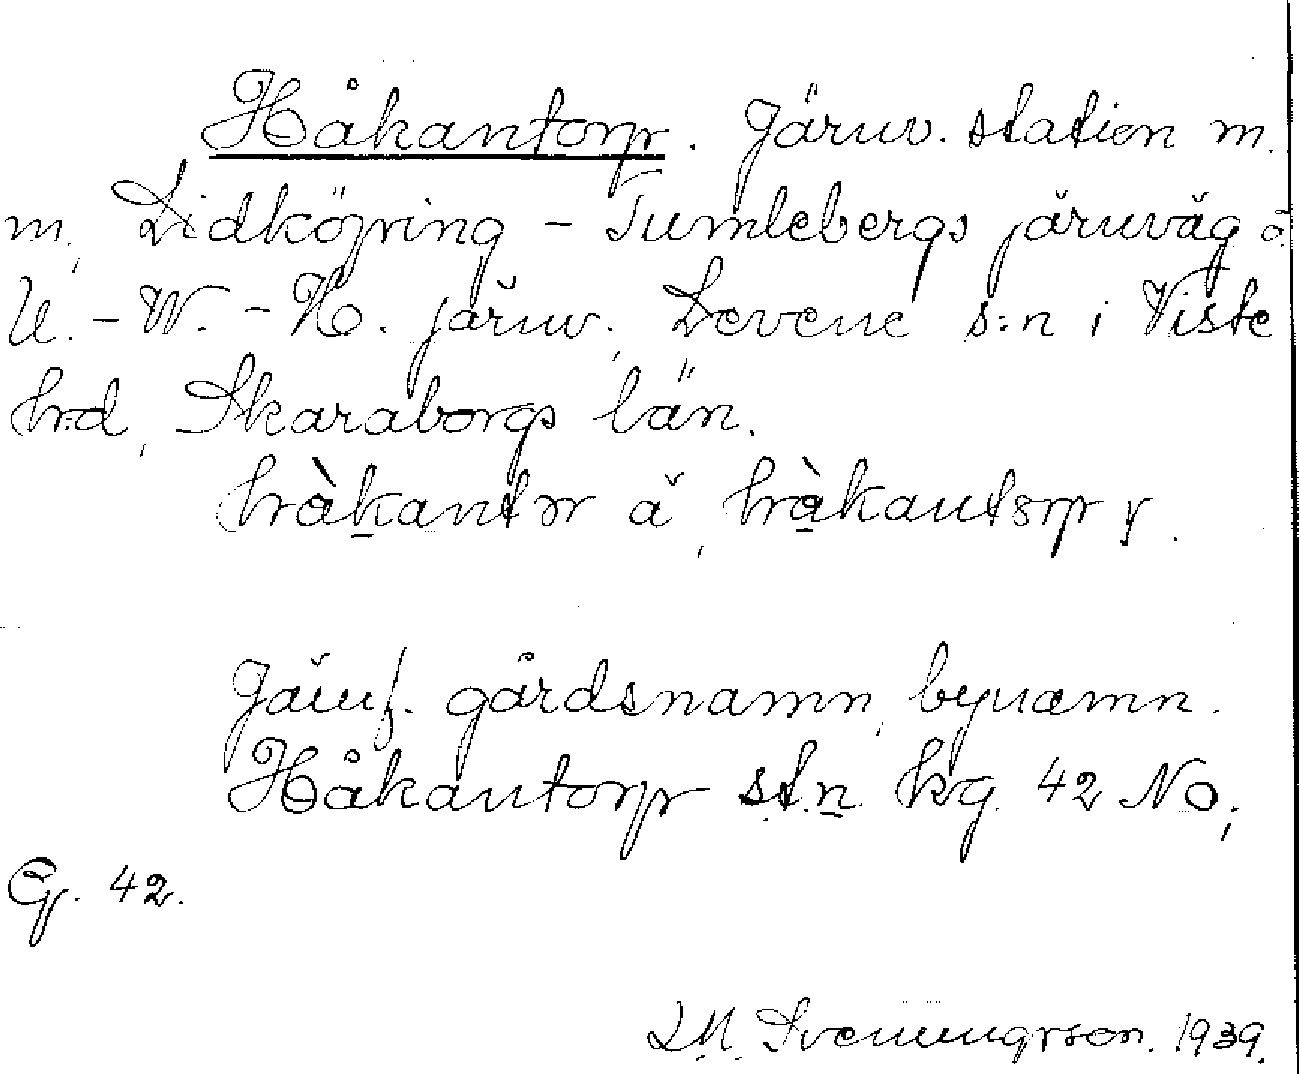 Håkantorp. Järnv. station m.
m, Lidköping - Tumlebergs järnväg o.
U. - W. - H. järnv., Levene s:n i Viste
hrd, Skaraborgs län.
hàkantɔr ä, hàkantorp
Jämf. gårdsnamn, bynamn.
Håkantorp st.n. kg. 42 No;
G. 42.
Svenningsson. 1939.